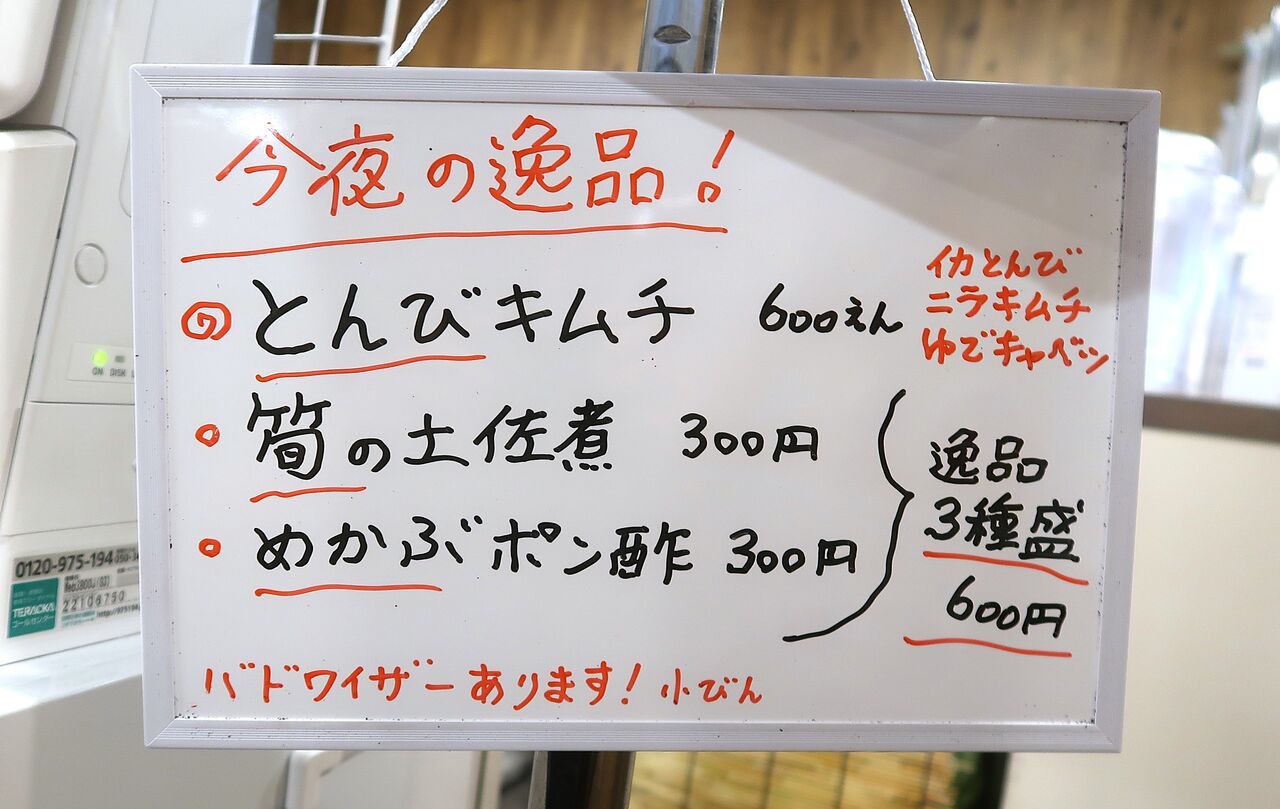 今夜の逸品!
の とんびキムチ 600えん
イカとんび
ニラキムチ
ゆでキャベツ
筍の土佐煮 300円
めかぶポン酢 300円
逸品
3種盛
600円
バドワイザーあります! 小びん
ON DISK
0120-975-194
22106750
TERAOKA
コールセンター